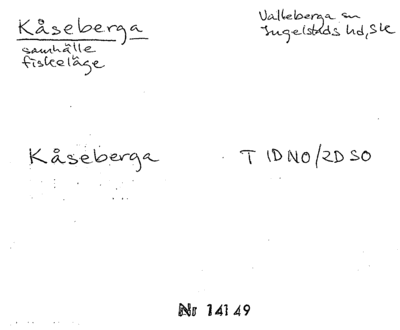 Kåseberga
samhälle
fiskeläge
Valleberga sn
Ingelstads hd, Sk
Kåseberga T 1D NO/2D SO
Nr 14149